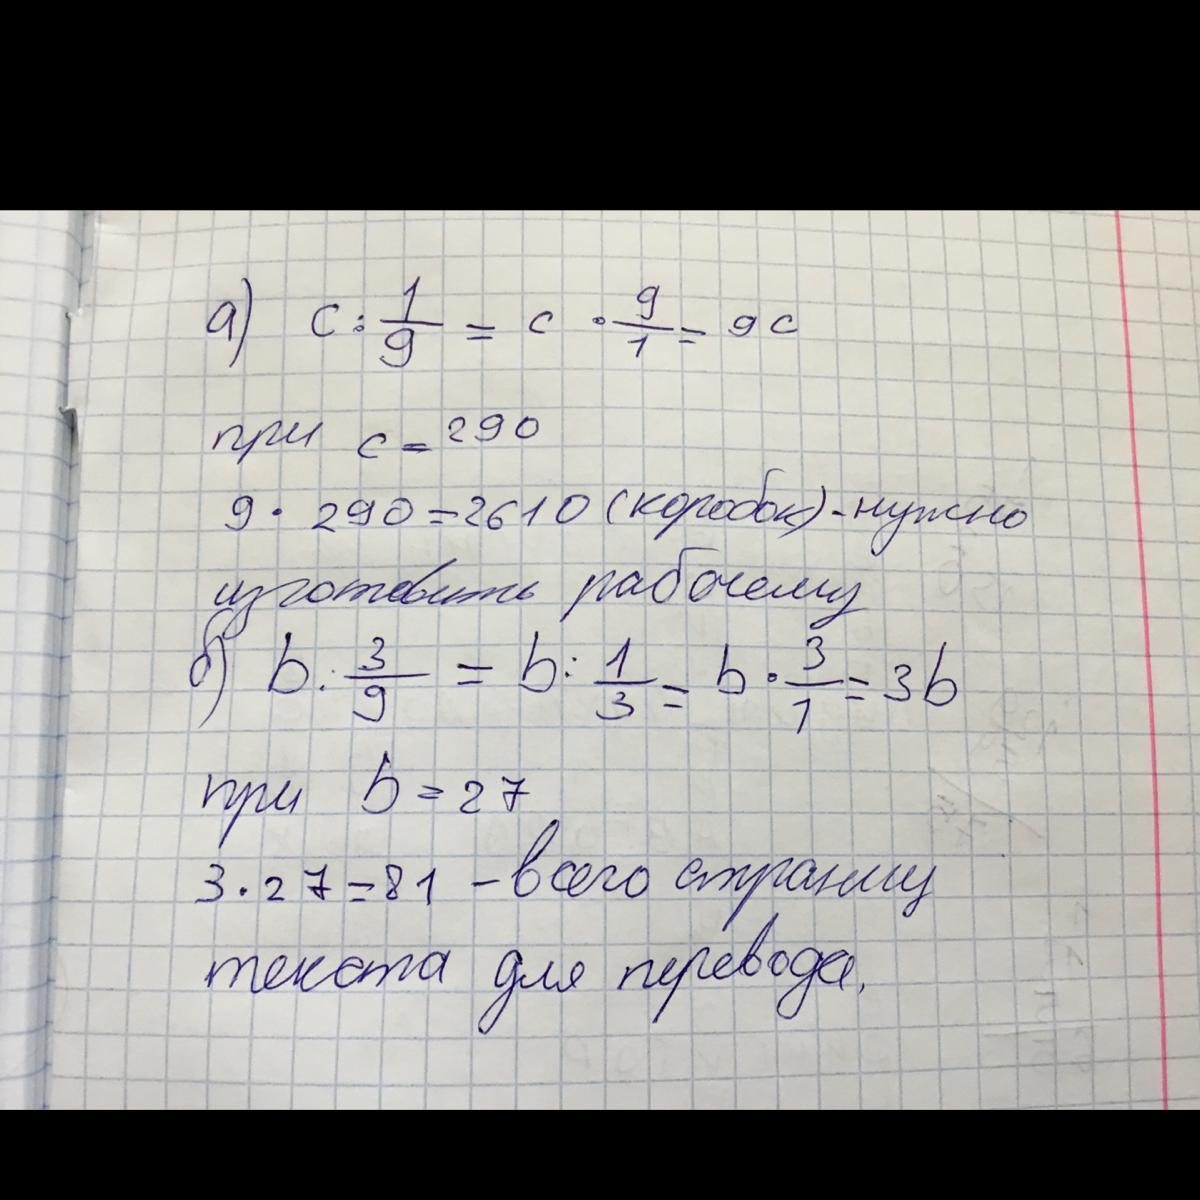 а) c : 1/9 = c · 9/1 = 9c
при c = 290
9 · 290 = 2610 (коробок) - нужно
изготовить рабочему
б) b : 3/9 = b : 1/3 = b · 3/1 = 3b
при b = 27
3 · 27 = 81 - всего страниц
текста для перевода.